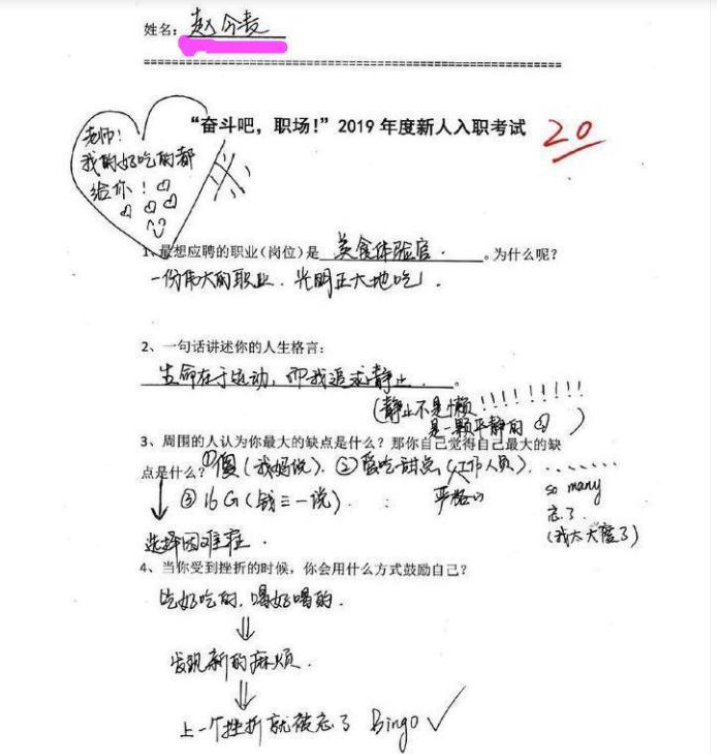 姓名: 赵今麦
"奋斗吧,职场!"2019 年度新人入职考试
20
老师!
我的好吃的都
给你!
1、最想应聘的职业(岗位)是 美食体验官. 。为什么呢?
一份伟大的职业. 光明正大地吃!.
2、一句话讲述你的人生格言:
生命在于运动, 而我追求静止. 。
(静止不是懒!!!!!!!!!
是一颗平静的 )
3、周围的人认为你最大的缺点是什么?那你自己觉得自己最大的缺
点是什么? ①傻(我妈说). ②爱吃甜点(工作人员). .......
③16G(钱三一说). : 严格的 so many
忘了.
(我太大度了)
选择困难症.
4、当你受到挫折的时候,你会用什么方式鼓励自己?
吃好吃的, 喝好喝的.
发现新的麻烦.
上一个挫折就被忘了 Bingo